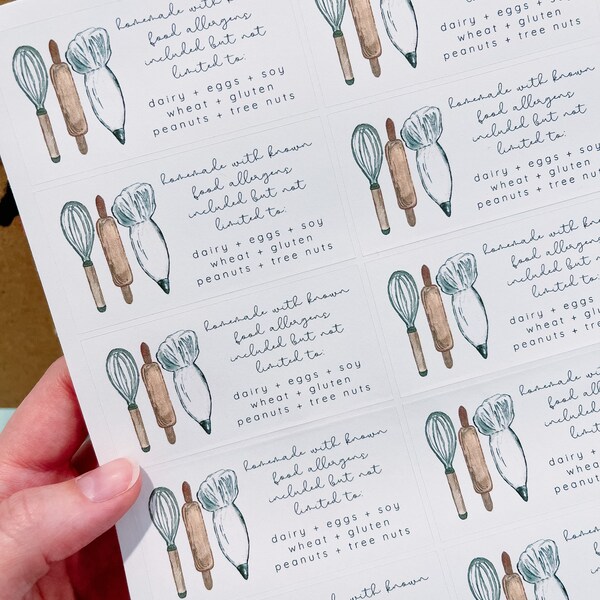 homemade with known
food allergens
included but not
limited to:
dairy + eggs + soy
wheat + gluten
peanuts + tree nuts
homemade with known
food allergens
included but not
limited to:
dairy + eggs + soy
wheat + gluten
peanuts + tree nuts
homemade with known
food allergens
included but not
limited to:
dairy + eggs + soy
wheat + gluten
peanuts + tree nuts
homemade with known
food allergens
included but not
limited to:
dairy + eggs + soy
wheat + gluten
peanuts + tree nuts
homemade with known
homemade with known
food allergens
included but not
limited to:
dairy + eggs + soy
wheat + gluten
peanuts + tree nuts
homemade with
food allergens
included but not
limited to:
dairy + eggs +
wheat + gluten
peanuts + tree
homemade with
food
included but
limited to:
dairy +
wheat +
peanuts +
homemade
food